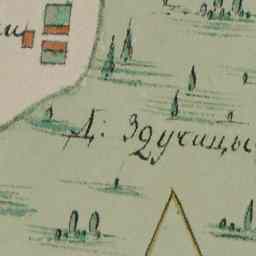 Д: Здучицы